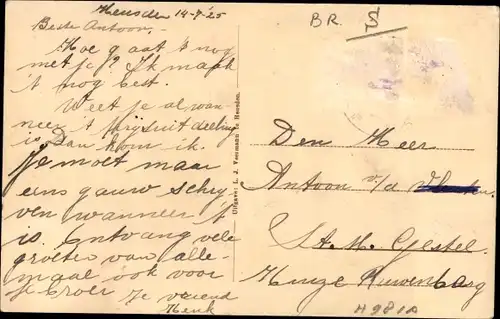 Heusden 14-7-'25
Beste Antoon,
Hoe gaat 't nog
met je? Ik maak
't nog best.
Weet je al wan-
neer 't prijsuitdeeling
is. Dan kom ik.
Je moet maar
eens gauw schrij
ven wanneer 't
is. Ontvang vele
groeten van alle-
maal ook voor
je Broer
Je vriend
Henk
Uitgave: L. J. Veermann, Heusden.
BR. S
Den Heer
Antoon v/d
St. M. Gestel.
Huize Ruwenberg
H 9810